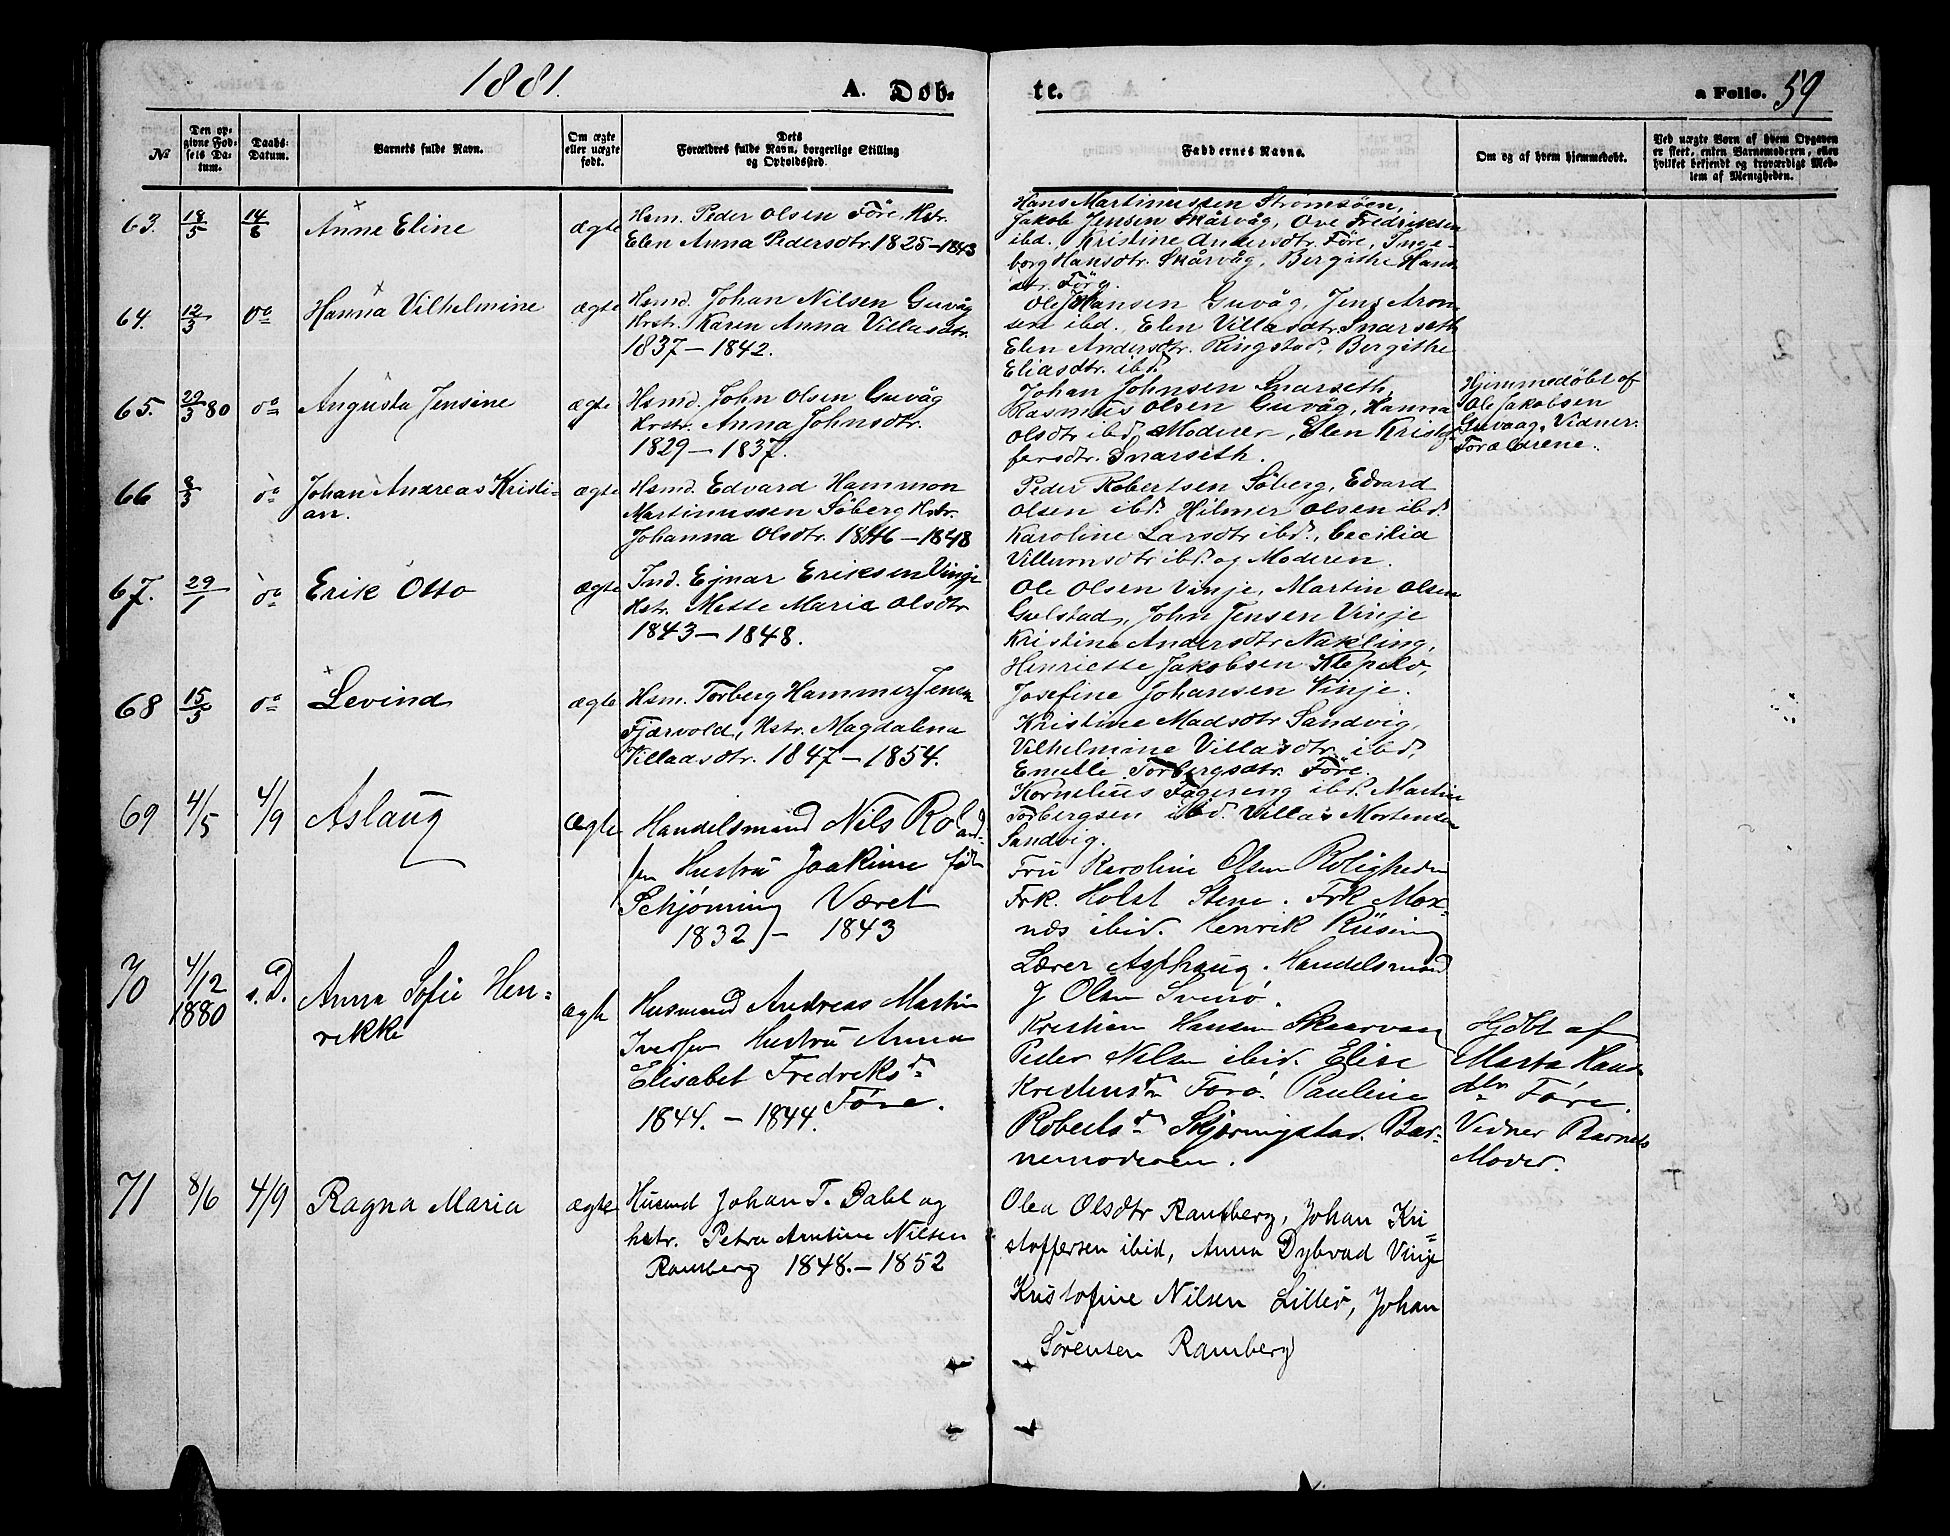 1881. A. Døb- te. a Folio. 59
№
Den op-
givne Fød-
sels Da-
tum.
Daabs-
Datum.
Barnets fulde Navn.
Om ægte
eller uægte
født.
Dets
Forældres fulde Navn, borgerlige Stilling
og Opholdssted.
Faddernes Navne.
Om og af hvem hjemmedøbt.
Ved uægte Børn af hvem Opgaven
er skeet, enten Barnemoderen, eller
hvilket bekjendt og troværdigt Med-
lem af Menigheden.
63. 18/5 14/6 Anne Eline ægte
Hsm. Peder Olsen Före, Hstr.
Elen Anna Pedersdtr. 1825-1843
Hans Martinussen Strömsöen,
Jakob Jensen Skårvåg, Ove Fredriksen
ibd. Kristine Andersdtr. Före, Inge-
borg Hansdtr. Skårvåg, Bergithe Hans
dtr. Förg.
64. 12/3 do Hanna Vilhelmine ægte
Hsmd. Johan Nilsen Guvåg
Hrstr. Karen Anna Villasdtr.
1837-1842.
Ole Hansen Guvåg, Jens Aron
sen ibd. Elen Villasdtr. Snarseth
Elen Andersdtr. Ringstad, Bergithe
Eliasdtr. ibd
65. 29/3 80 do Augusta Jensine ægte
Hsmd. John Olsen Guvåg
Hrstr. Anna Johnsdtr.
1829-1837.
Johan Johnsen Snarseth,
Rasmus Olsen Guvåg, Hanna
Olsdtr ibd, Moderen, Elen Kristof
fersdtr. Snarseth.
Hjemmedöbt af
Ole Jakobsen
Guvaag, Vidner.
Forældrene.
66 8/3 do Johan Andreas Kristi-
an. ægte
Hsmd. Edvard Hammon
Martinussen Söberg Hstr.
Johanna Olsdtr. 1846-1848
Peder Robertsen Söberg, Edvard
Olsen ibd. Hilmer Olsen ibd.
Karoline Larsdtr ibd., Cecilia
Villumsdtr ibd. og Moderen.
67. 29/1 do Erik Otto ægte
Ind. Ejnar Eriksen Vinje
Hstr. Mette Maria Olsdtr
1843-1848.
Ole Olsen Vinje, Martin Olsen
Gulstad, John Jensen Vinje
Kristine Andersdtr Nükling,
Henriette Jakobsen
Josefine Johansen Vinje.
68 15/5 do Levind ægte
Hsm. Torberg Hammer Jensen
Fjærvold, Hstr. Magdalena
Villadsdtr. 1847-1854.
Kristine Madsdtr Sandvig,
Vilhelmine Villasdtr. ibd,
Emelie Torbergsdtr. Före.
Kornelius Fagereng ibd. Martin
Torbergsen ibd. Villas Mortensen
Sandvig.
69 4/5 4/9 Aslaug ægte
Handelsmand Nils Roland-
sen Hustru Joakime född
Schjönning Været
1832 - 1843
Fru Karoline Olsen Roligheden
Frk. Holst Stene. Frk Mox-
nes ibid. Henrik Rüsing
Lærer Asphaug. Handelsmand
J Olsen Svinö.
70 4/12 1880 s. D. Anna Sofie Hen-
rikke ægte
Husmand Andreas Martin
Iversen Hustru Anna
Elisabet Fredriksdr
1844. - 1844. Före.
Kristian Hansen Skaarvaag
Peder Nilsen ibid. Elise
Foro. Pauline
Robertsdr Skjörningstad. Bar-
nemoderen.
Hjdöbt af
Marta Hans
dtr Före.
Vidner Barnets
Moder.
71 8/6 4/9 Ragna Maria ægte
Husmd Johan T. Dahl og
hstr. Petra Antine Nilsen
Ramberg 1848.-1852
Olea Olsdtr Ramberg, Johan Kri-
stoffersen ibid, Anna Dybvad Vinje
Kristofine Nilsen Lillö, Johan
Sörensen Ramberg